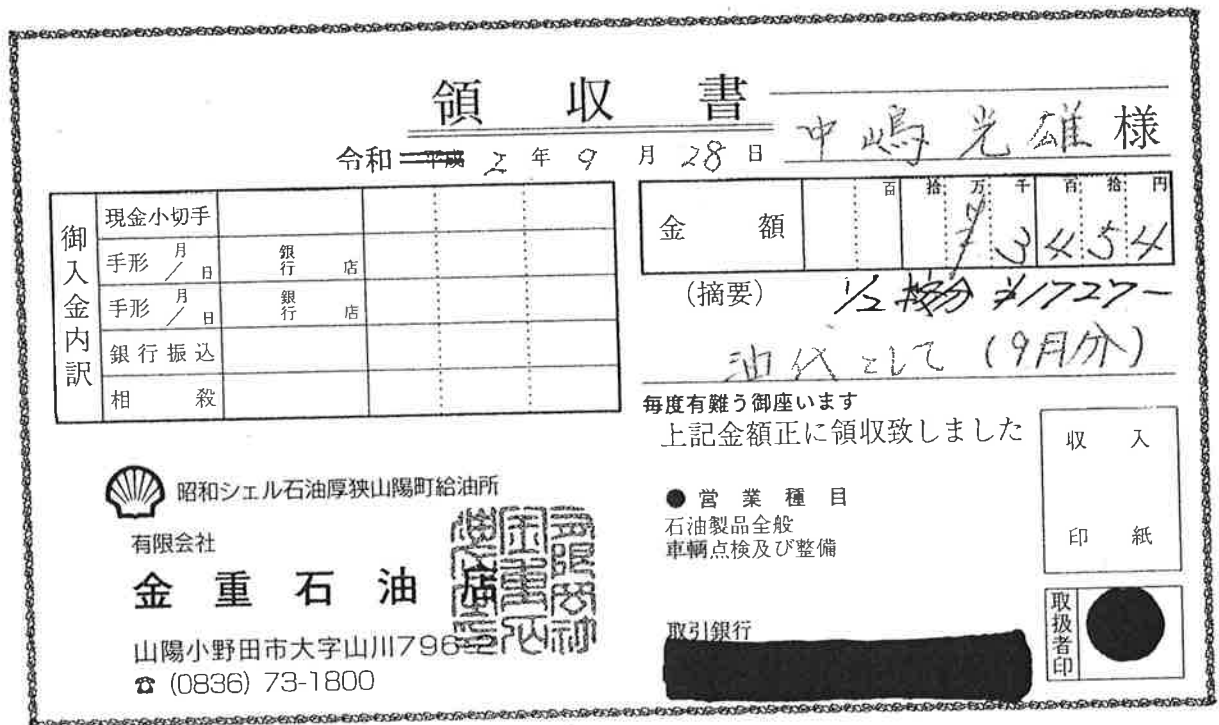 領収書
中嶋光雄様
令和 平成 2年9月28日
御入金内訳
現金小切手
手形 月/日 銀行 店
手形 月/日 銀行 店
銀行振込
相殺
金額 百 拾 万 千 百 拾 円
¥3454
(摘要) 1/2 按分 ¥1727-
油代として (9月分)
毎度有難う御座います
上記金額正に領収致しました
収入印紙
昭和シェル石油厚狭山陽町給油所
有限会社
金重石油店
山陽小野田市大字山川796-2
☎ (0836) 73-1800
●営業種目
石油製品全般
車輌点検及び整備
取引銀行
取扱者印